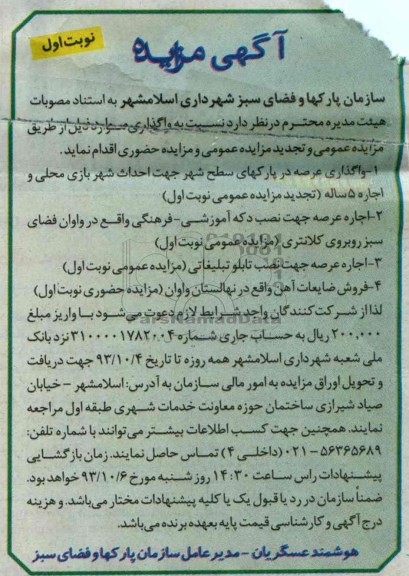 نوبت اول
آگهی مزایده
سازمان پارکها و فضای سبز شهرداری اسلامشهر به استناد مصوبات
هیئت مدیره محترم در نظر دارد نسبت به واگذاری موارد ذیل از طریق
مزایده عمومی و تجدید مزایده عمومی و مزایده حضوری اقدام نماید.
۱-واگذاری عرصه در پارکهای سطح شهر جهت احداث شهر بازی محلی و
اجاره ۵ ساله (تجدید مزایده عمومی نوبت اول)
۲-اجاره عرصه جهت نصب دکه آموزشی- فرهنگی واقع در واوان فضای
سبز روبروی کلانتری (مزایده عمومی نوبت اول)
۳-اجاره عرصه جهت نصب تابلو تبلیغاتی (مزایده عمومی نوبت اول)
۴-فروش ضایعات آهن واقع در نهالستان واوان (مزایده حضوری نوبت اول)
لذا از شرکت کنندگان واجد شرایط لازم دعوت می‌شود با واریز مبلغ
۲۰۰,۰۰۰ ریال به حساب جاری شماره ۳۱۰۰۰۰۱۷۸۲۰۰۴ نزد بانک
ملی شعبه شهرداری اسلامشهر همه روزه تا تاریخ ۹۳/۱۰/۴ جهت دریافت
و تحویل اوراق مزایده به امور مالی سازمان به آدرس: اسلامشهر – خیابان
صیاد شیرازی ساختمان حوزه معاونت خدمات شهری طبقه اول مراجعه
نمایند. همچنین جهت کسب اطلاعات بیشتر می‌توانند با شماره تلفن:
۵۶۳۶۵۶۸۹ - ۰۲۱ (داخلی ۴) تماس حاصل نمایند. زمان بازگشایی
پیشنهادات راس ساعت ۱۴:۳۰ روز شنبه مورخ ۹۳/۱۰/۶ خواهد بود.
ضمناً سازمان در رد یا قبول یک یا کلیه پیشنهادات مختار می‌باشد. و هزینه
درج آگهی و کارشناسی قیمت پایه بعهده برنده می‌باشد.
هوشمند عسگریان – مدیر عامل سازمان پارکها و فضای سبز